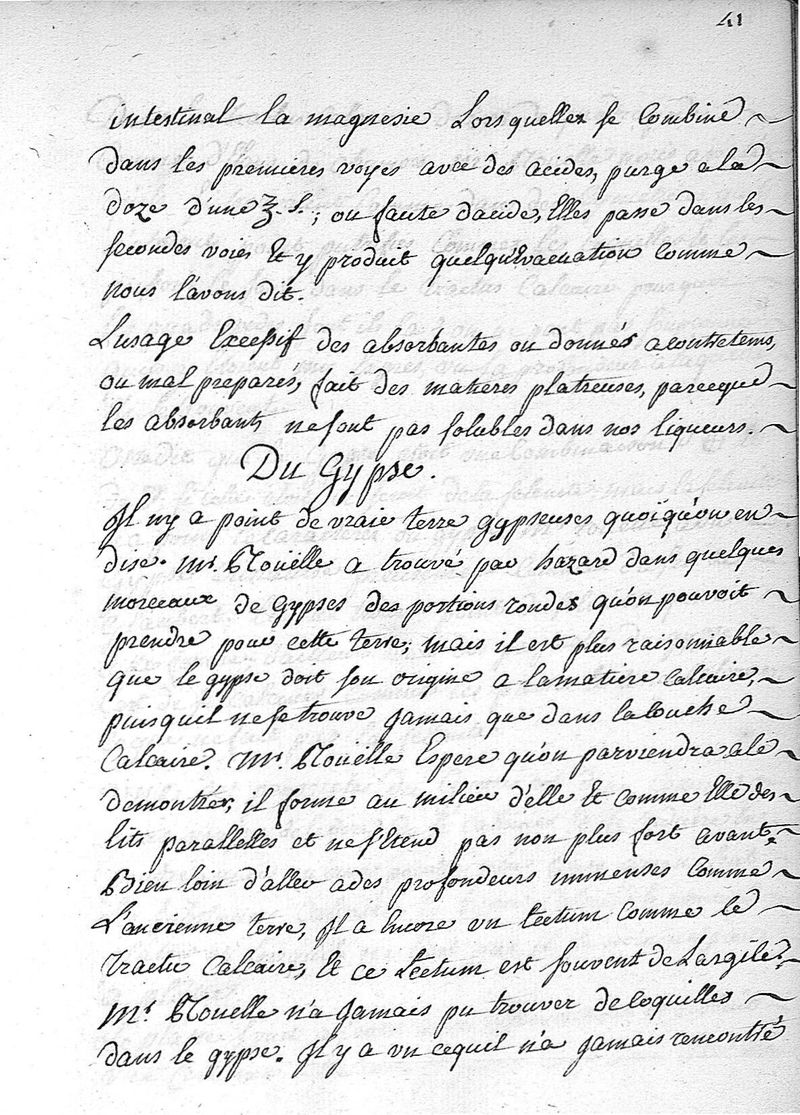 41
intestinal la magnesie Lors quelles se Combine
dans les premieres voyes avec des acides, purge a la
doze d'une ʒ. S.; ou faute dacide, Elles passe dans les
secondes voies Et y produit quelqu'Evacuation comme
nous l'avons dit.
Lusage Excessif des absorbantes ou donnés acontretems,
ou mal preparés, fait des matieres platreuses, parceque
les absorbants ne sont pas solubles dans nos liqueurs.
Du Gypse.
Il ny a point de vraie terre gypseuses quoiqu'on en
dise. Mr. Roüelle a trouvé par hazard dans quelques
morceaux de Gypses des portions rondes qu'on pouvoit
prendre pour cette terre; mais il est plus raisonnable
que le gypse doit son origine a la matiere Calcaire,
puisquil ne se trouve Jamais que dans la Couche
Calcaire. Mr. Roüelle Espere qu'on parviendra a le
demontrer; il forme au milieu d'elle Et comme Elle des
lits parallelles et ne s'Etend pas non plus fort avant,
Bien loin d'aller a des profondeurs immenses comme
L'ancienne terre, Il a Encore un tectum comme le
Tractu Calcaire, Et ce tectum est souvent de Largile.
Mr Rouelle n'a Jamais pu trouver de Coquilles
dans le gypse. Il y a vn cequil n'a Jamais rencontré